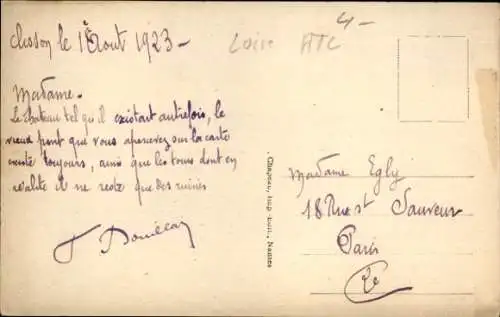 Clisson le 1er Aout 1923 –
Loire HTC 4 –
Madame –
Le chateau tel qu'il existait autrefois, le
vieux pont que vous apercevez sur la carte
existe toujours, ainsi que les tours dont en
réalité il ne reste que des ruines
Chapeau, Imp.-Edit., Nantes
Madame Egly
18 Rue St Sauveur
Paris
2e